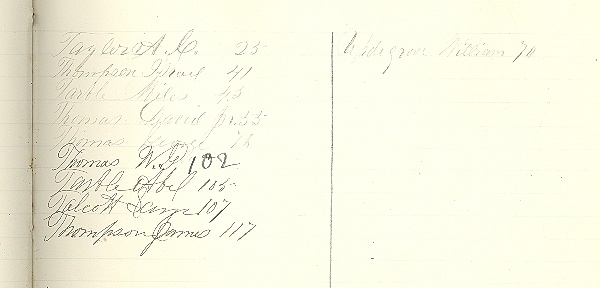 Taylor A. C. 25
Thompson Israel 41
Tarble Miles 45
Thomas David Jr. 55
Thomas George 76
Thomas W. P. 102
Tarble Abel 105
Talcott Sam 107
Thompson James 117
Updegrove William 70